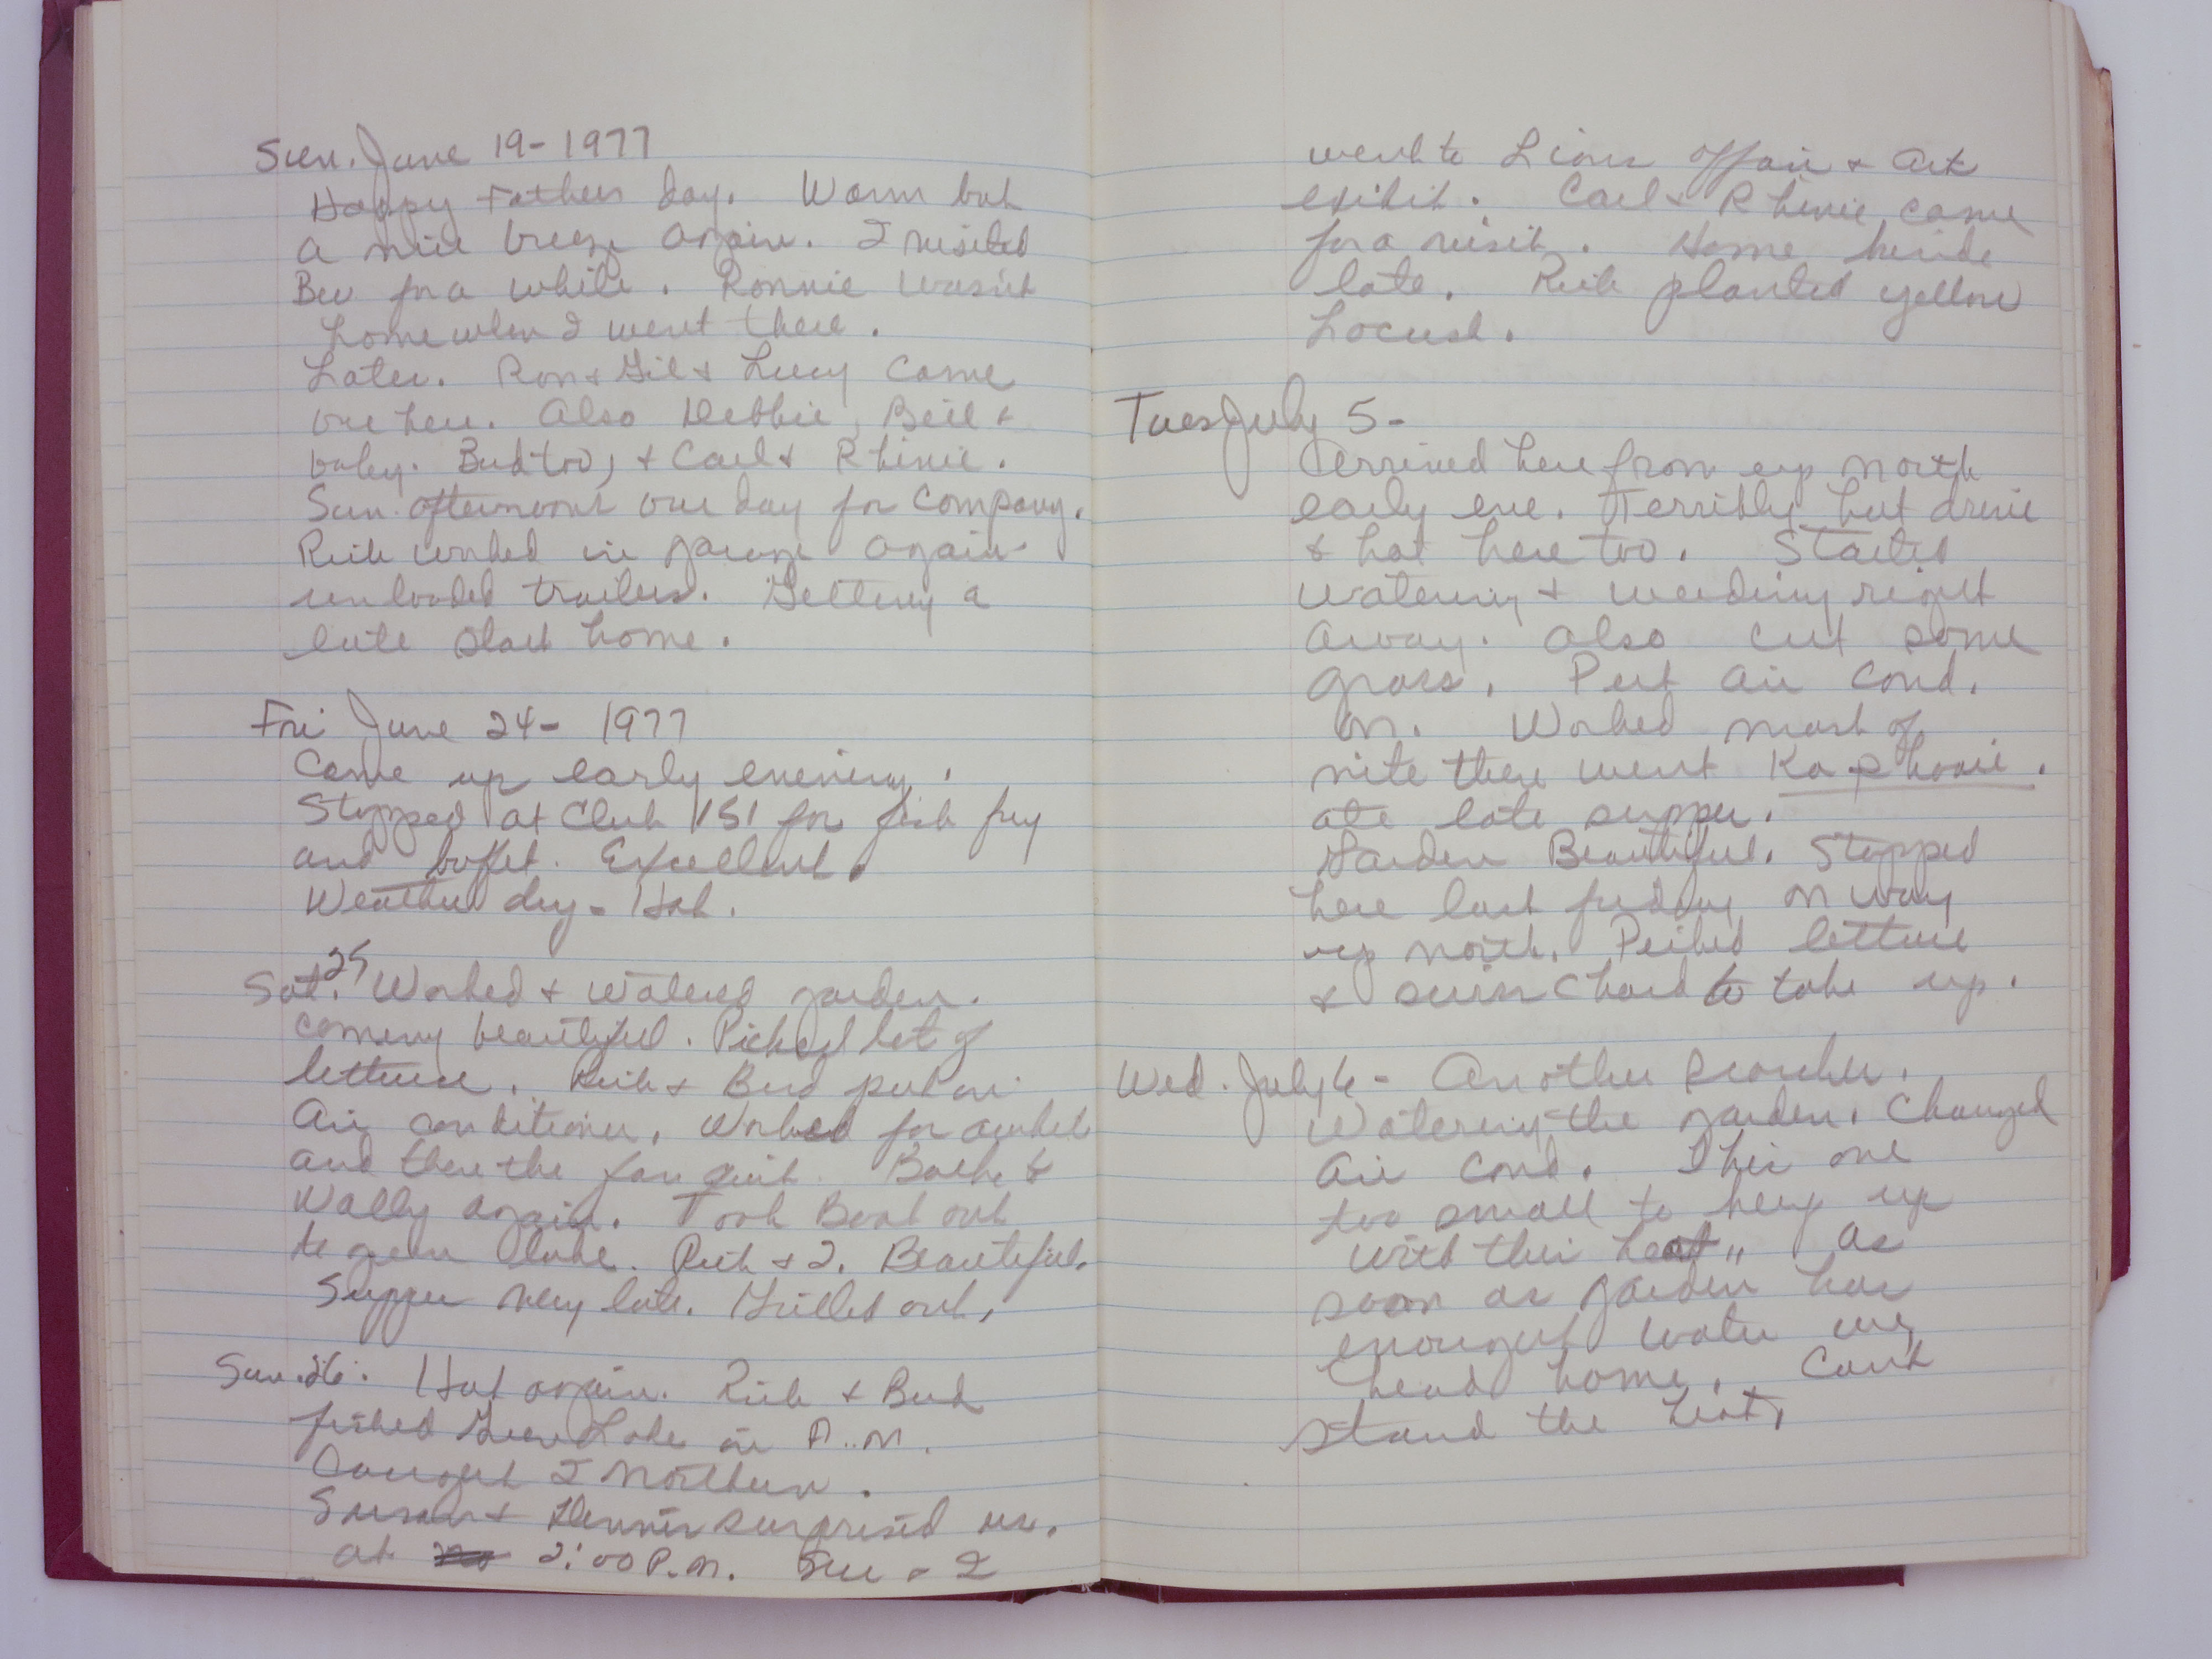 Sun. June 19-1977
Happy Fathers Day. Warm but
a nice breeze again. I visited
Bev for a while. Ronnie wasn't
home when I went there.
Later. Ron & Gil & Lucy came
over here. Also Debbie, Bill &
baby. Bud too, & Carl & Rhinie.
Sun. afternoons our day for company.
Rich worked in garage again
unloaded trailers. Getting a
late start home.
Fri June 24- 1977
Came up early evening.
Stopped at Club 151 for fish fry
and buffet. Excellent.
Weather dry - Hot.
Sat. 25 Worked & watered garden.
coming beautiful. Picked lot of
lettuce. Rich & Bud put in
Air conditioner. Worked for awhile
and then the fan quit. Back to
Wally again. Took Boat out
to green lake. Rich & I. Beautiful.
Supper very late. Grilled out,
Sun. 26. Hot again. Rich & Bud
fished Green Lake in A.M.
Caught 2 Northern.
Susan & Dennis surprised us.
at 2:00 P.M. Sue & I
went to Lions affair & Art
exibit. Carl & Rhinie came
for a visit. Home
late. Rich planted yellow
Locust.
Tues July 5-
Arrived here from up north
early eve. Terribly hot drive
& hot here too. Started
watering & weeding right
away. Also cut some
grass. Put air cond.
on. Worked most of
nite then went Kaphooie.
ate late supper.
Garden Beautiful. Stopped
here last friday on way
up north. Picked lettuce
& swiss chard to take up.
Wed. July 6- Another scorcher.
Watering the garden. Changed
air cond. This one
too small to keep up
with this heat" as
soon as garden has
enought water we
head home. Cant
stand the heat,